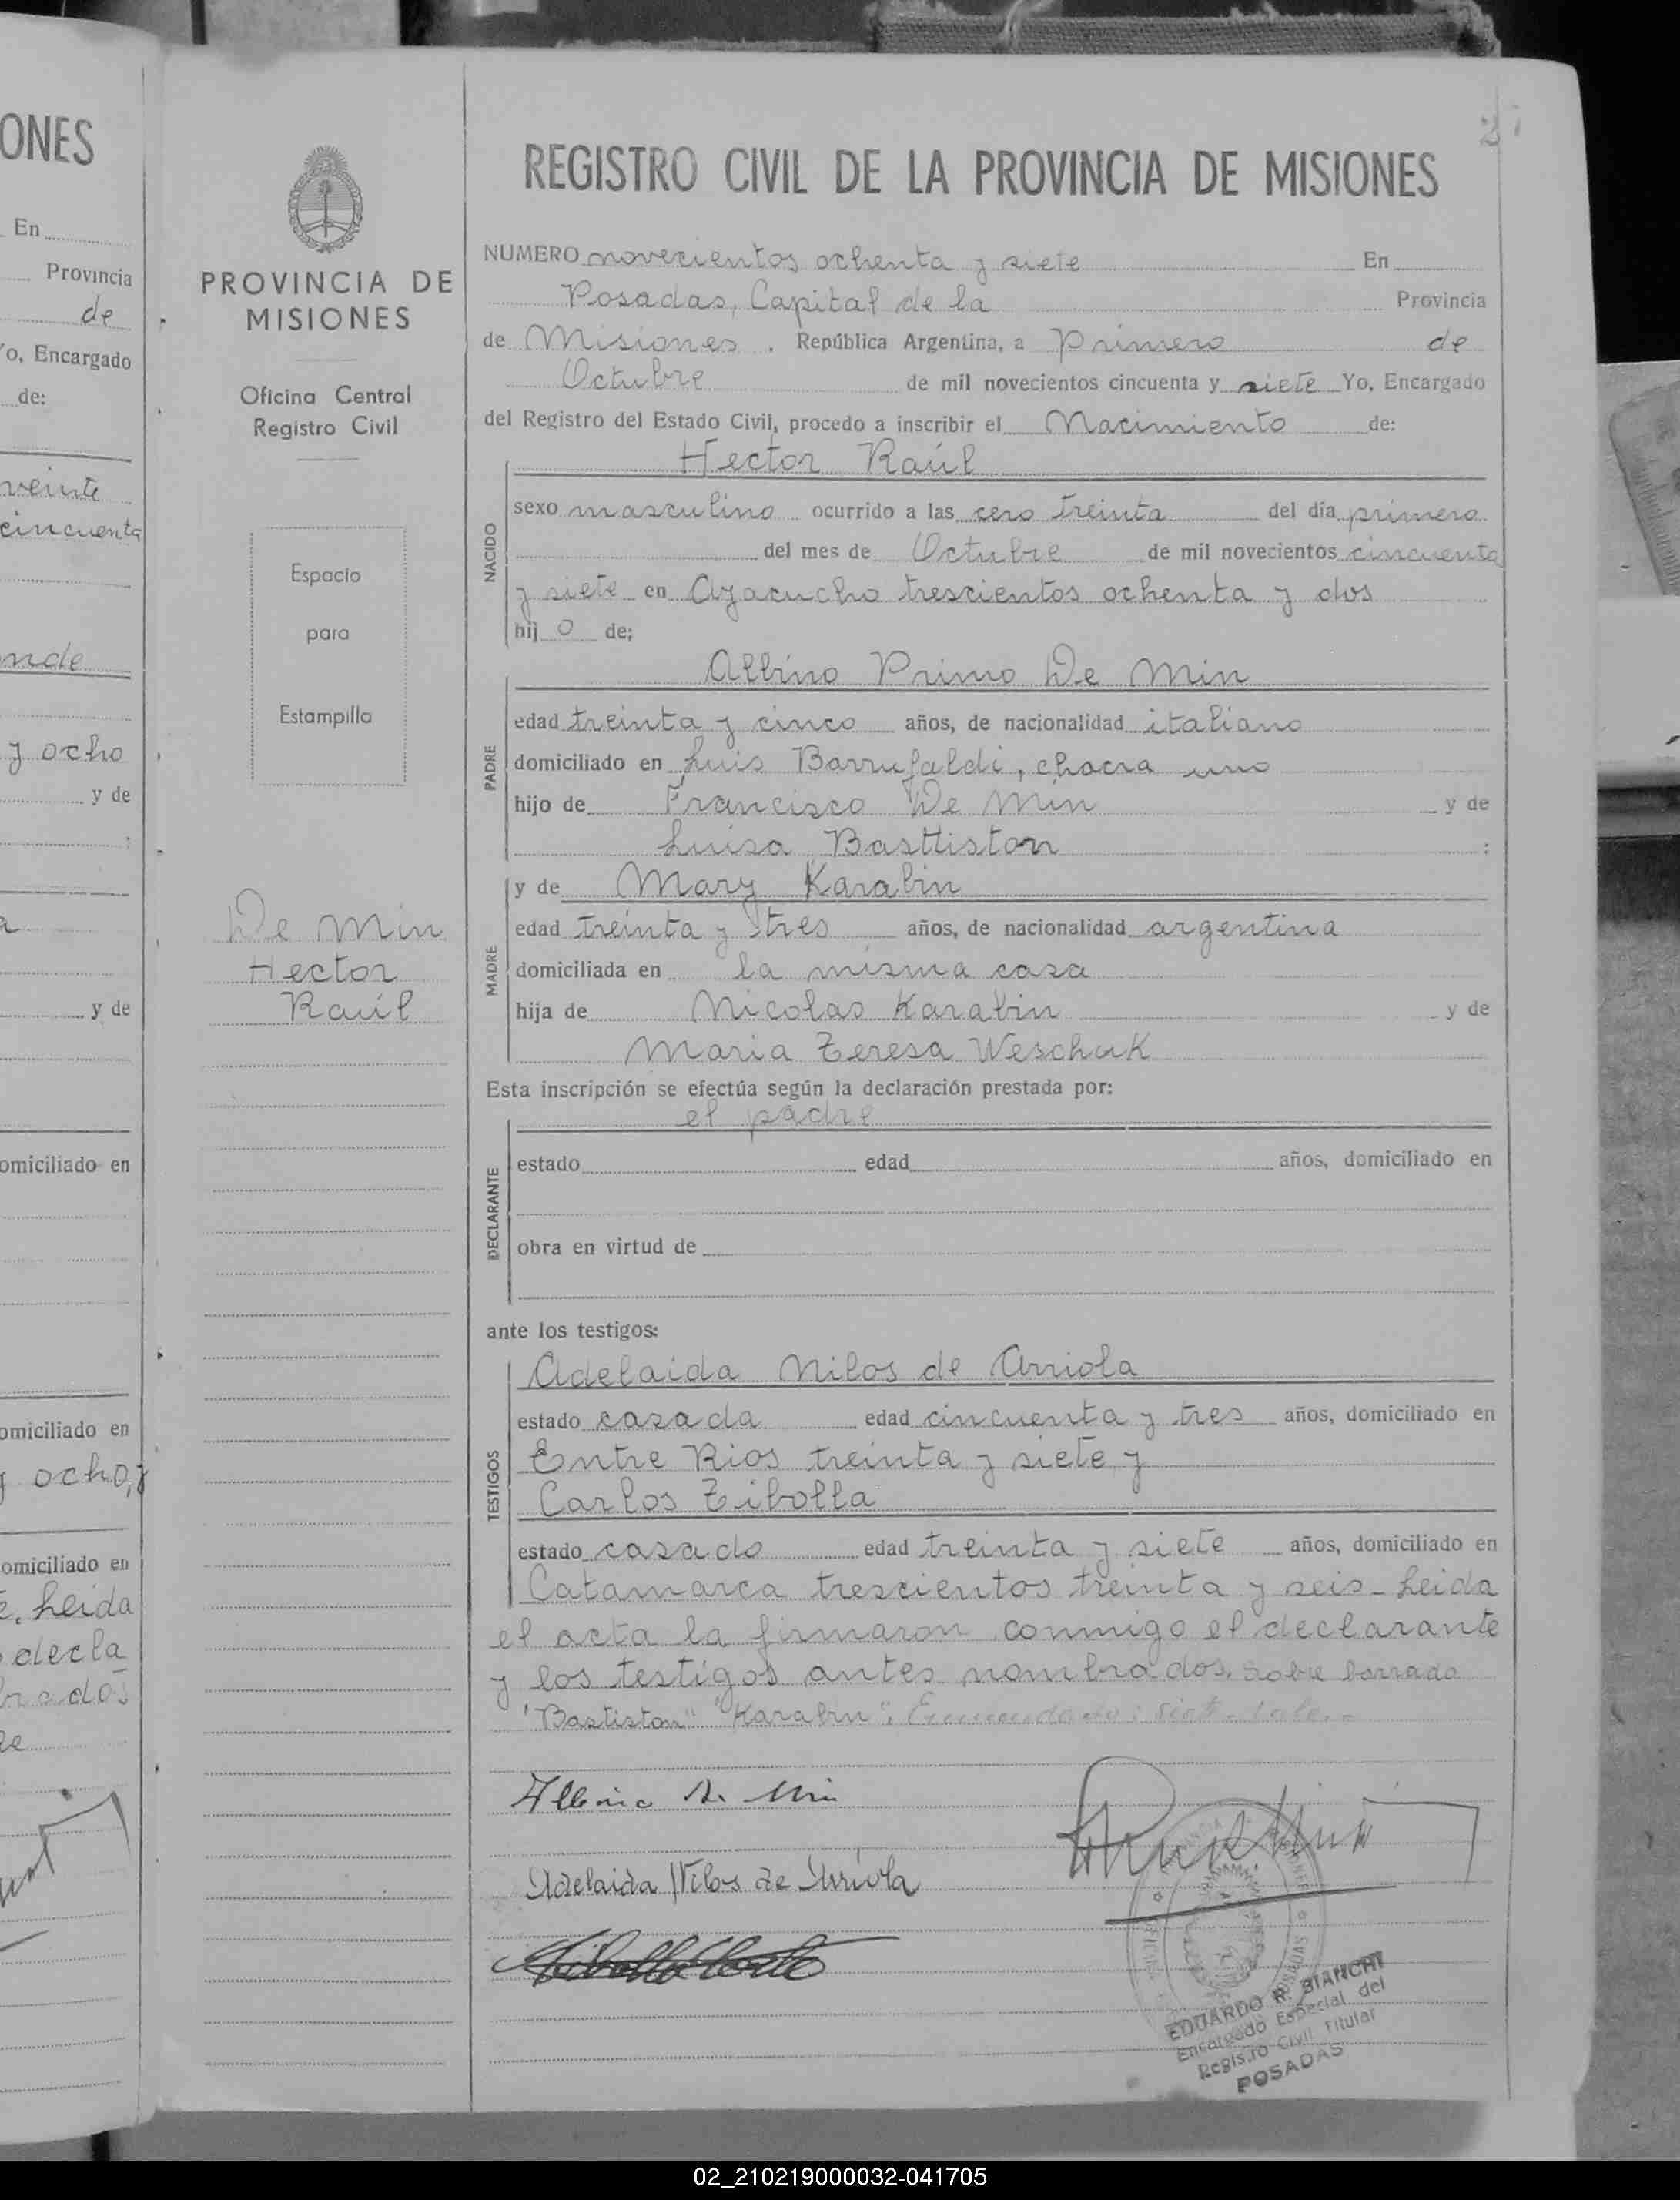 ONES
En
Provincia
de
Yo, Encargado
de:
veinte
cincuenta
y ocho
y de
y de
omiciliado en
omiciliado en
y ocho, y
omiciliado en
Leida
decla
PROVINCIA DE
MISIONES
Oficina Central
Registro Civil
Espacio
para
Estampilla
De Min
Hector
Raúl
REGISTRO CIVIL DE LA PROVINCIA DE MISIONES
NUMERO novecientos ochenta y siete En
Posadas, Capital de la Provincia
de Misiones. República Argentina, a Primero de
Octubre de mil novecientos cincuenta y siete Yo, Encargado
del Registro del Estado Civil, procedo a inscribir el Nacimiento de:
Hector Raúl
NACIDO
sexo masculino ocurrido a las cero treinta del día primero
del mes de Octubre de mil novecientos cincuenta
y siete en Ayacucho trescientos ochenta y dos
hij o de;
Albino Primo De Min
PADRE
edad treinta y cinco años, de nacionalidad italiano
domiciliado en Luis Barrufaldi, chacra uno
hijo de Francisco De Min y de
Luisa Basttiston :
MADRE
y de Mary Karabin
edad treinta y tres años, de nacionalidad argentina
domiciliada en la misma casa
hija de Nicolas Karabin y de
Maria Teresa Weschuk
Esta inscripción se efectúa según la declaración prestada por:
el padre
DECLARANTE
estado edad años, domiciliado en
obra en virtud de
ante los testigos:
TESTIGOS
Adelaida Nilos de Arriola
estado casada edad cincuenta y tres años, domiciliado en
Entre Rios treinta y siete y
Carlos Tibolla
estado casado edad treinta y siete años, domiciliado en
Catamarca trescientos treinta y seis - Leida
el acta la firmaron conmigo el declarante
y los testigos antes nombrados. Sobre borrado
"Bastiston" "Karabin". Enmendado: siete. Vale.-
Albino De Min
Adelaida Nilos de Arriola
EDUARDO R. BIANCHI
Encargado Especial del
Registro Civil Titular
POSADAS
02_210219000032-041705